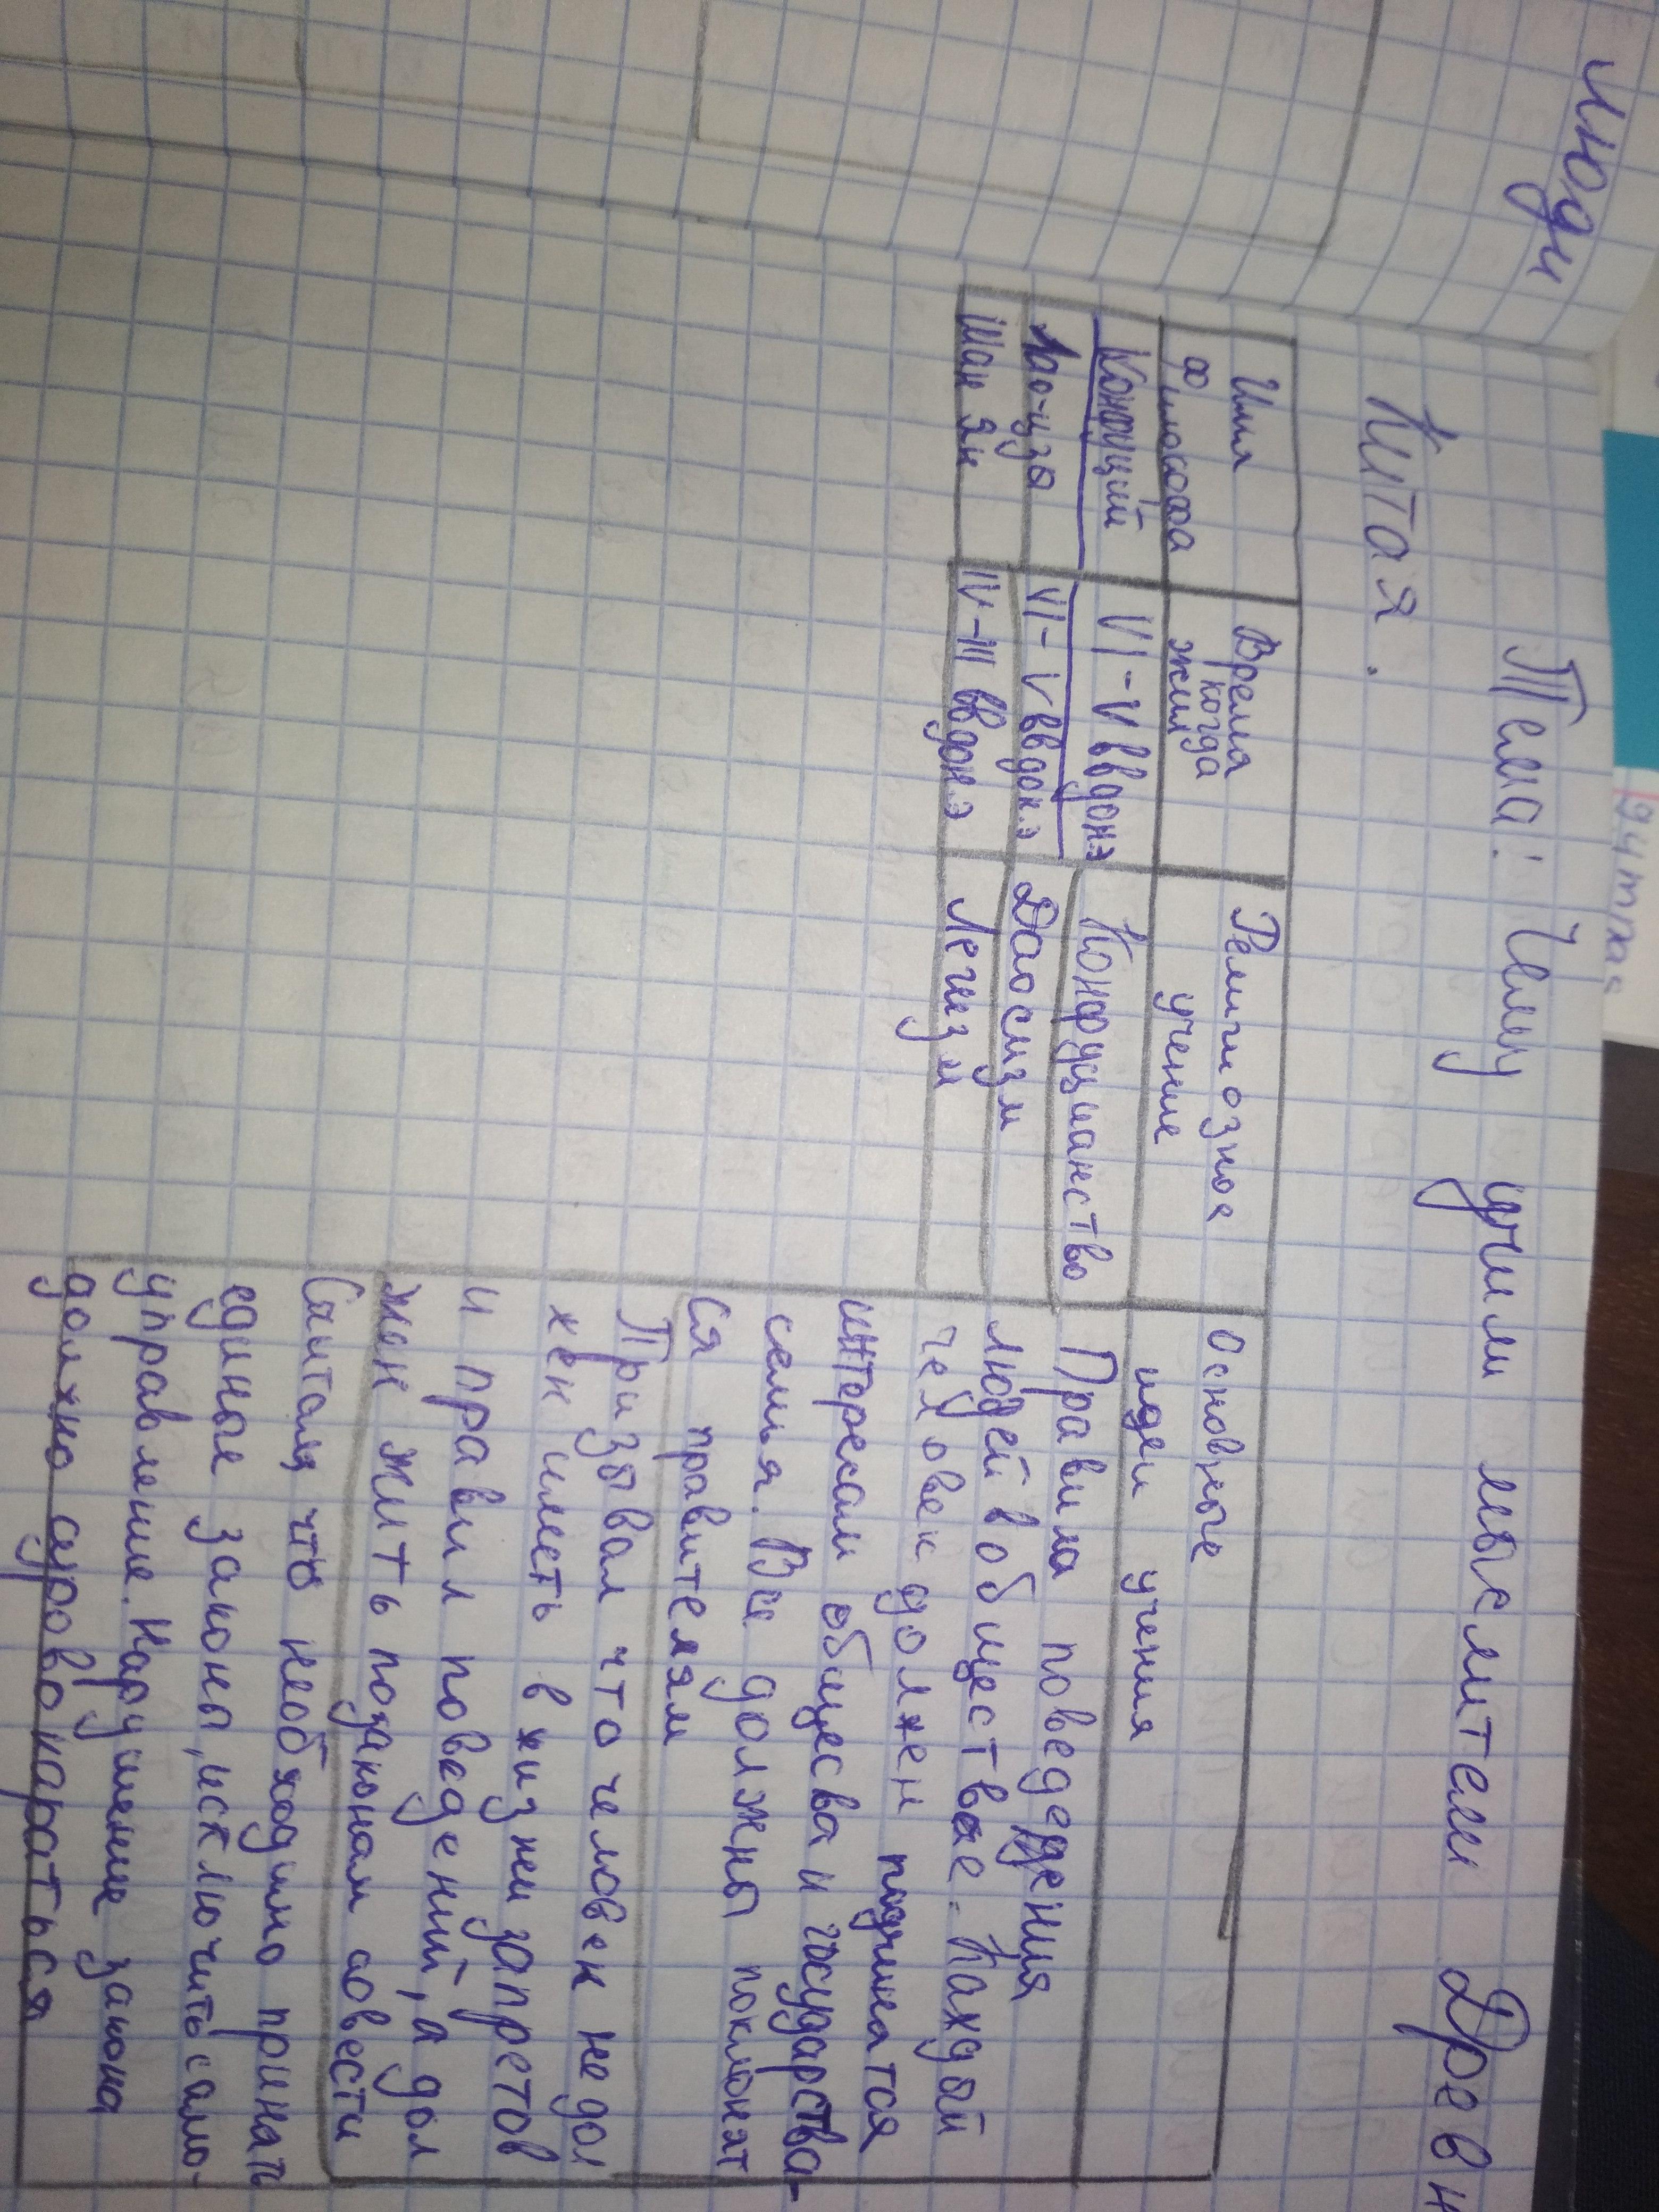 люди
Тема: Чему учили мыслители Древн
Китая.
Имя
философа
Время
когда
жил
Религиозное
учение
Основные
идеи учения
Конфуций
VI-V ввдонэ
Конфуцианство
Правила поведедения
людей в обществае. Каждый
человек должен подчинатся
интересам общесва и государства-
семья. Все должны поклонят
ся правителям
Лао-цзы
VI-V ввдонэ
Даосизм
Призывал что человек не дол
жен иметь в жизни запретов
и правил поведений, а дол
жен жить позаконам совести
Шан Ян
IV-III ввдонэ
Легизм
Считал, что необходимо принать
единые законы, исключить само-
управление. Нарушение закона
должно сурово караться